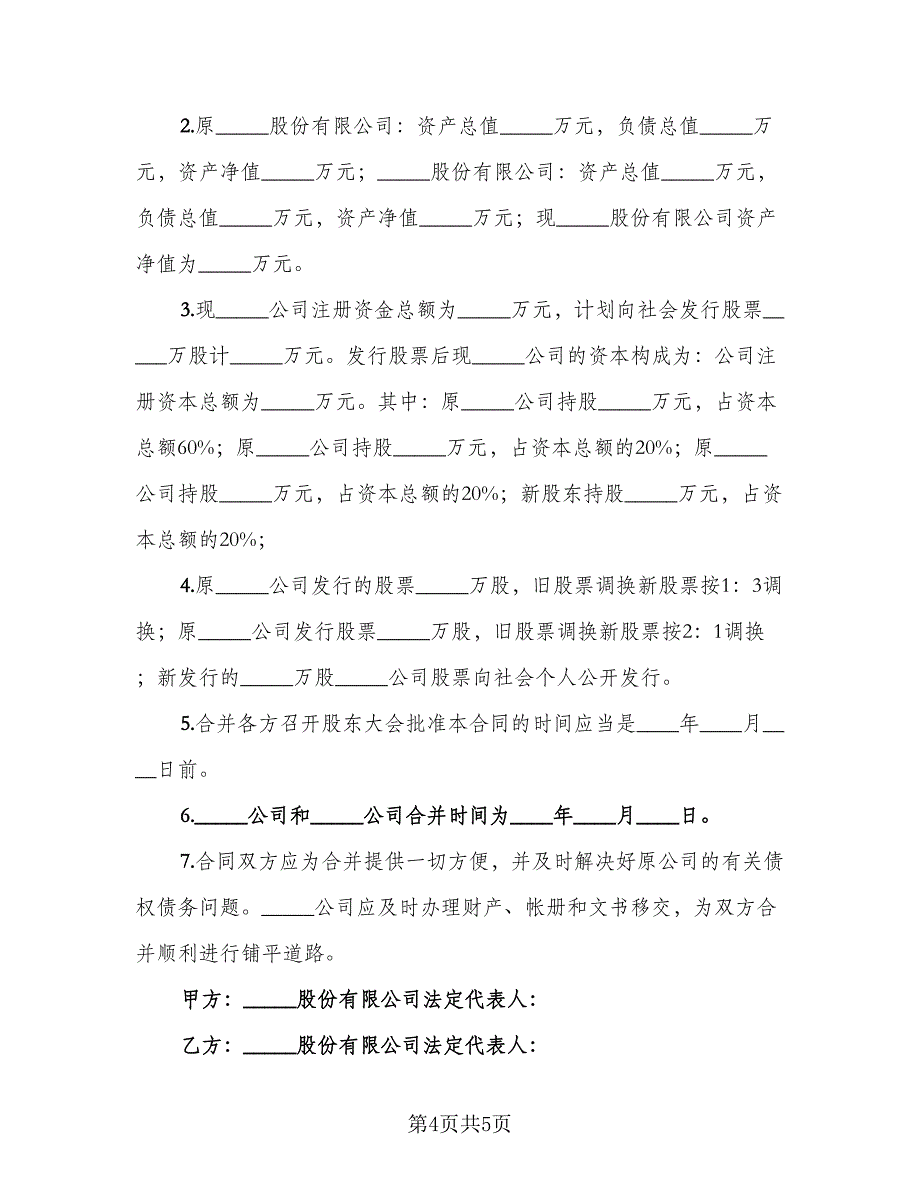 2.原_____股份有限公司：资产总值_____万元，负债总值_____万
元，资产净值_____万元；_____股份有限公司：资产总值_____万元，
负债总值_____万元，资产净值_____万元；现_____股份有限公司资产
净值为_____万元。
3.现_____公司注册资金总额为_____万元，计划向社会发行股票__
___万股计_____万元。发行股票后现_____公司的资本构成为：公司注
册资本总额为_____万元。其中：原_____公司持股_____万元，占资本
总额60%；原_____公司持股_____万元，占资本总额的20%；原_____
公司持股_____万元，占资本总额的20%；新股东持股_____万元，占资
本总额的20%；
4.原_____公司发行的股票_____万股，旧股票调换新股票按1：3调
换；原_____公司发行股票_____万股，旧股票调换新股票按2：1调换
；新发行的_____万股_____公司股票向社会个人公开发行。
5.合并各方召开股东大会批准本合同的时间应当是____年____月__
__日前。
6._____公司和_____公司合并时间为____年____月____日。
7.合同双方应为合并提供一切方便，并及时解决好原公司的有关债
权债务问题。_____公司应及时办理财产、帐册和文书移交，为双方合
并顺利进行铺平道路。
甲方：_____股份有限公司法定代表人：
乙方：_____股份有限公司法定代表人：
第4页共5页